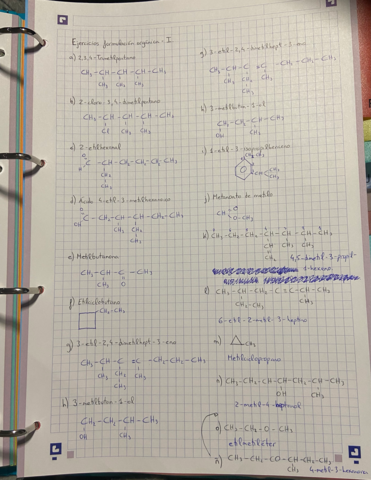 Ejercicios formulación orgánica - I
a) 2,3,4-Trimetilpentano
CH₃-CH-CH-CH-CH₃
CH₃ CH₃ CH₃
b) 2-cloro-3,4-dimetilpentano
CH₃-CH-CH-CH-CH₃
Cl CH₃ CH₃
c) 2-etilhexanal
C-CH-CH₂-CH₂-CH₂-CH₃
CH₂
CH₃
d) Ácido 4-etil-3-metilhexanoico
C-CH₂-CH-CH-CH₂-CH₃
OH
CH₃ CH₂
CH₃
e) Metilbutanona
CH₃-CH-C-CH₃
CH₃ O
f) Etilciclobutano
CH₂-CH₃
g) 3-etil-2,4-dimetilhept-3-eno
CH₃-CH-C=C-CH₂-CH₂-CH₃
CH₃ CH₂ CH₃
CH₃
h) 3-metilbutan-1-ol
CH₂-CH₂-CH-CH₃
OH CH₃
g) 3-etil-2,4-dimetilhept-3-eno
CH₃-CH-C=C-CH₂-CH₂-CH₃
CH₃ CH₂ CH₃
CH₃
h) 3-metilbutan-1-ol
CH₂-CH₂-CH-CH₃
OH CH₃
j) Metanoato de metilo
O-CH₃
k)
4,5-dimetil-3-propil-
1-hexeno
l)
CH₂-CH₃
CH₃
6-etil-2-metil-3-heptino
m)
CH₃
Metilciclopropano
n) CH₃-CH₂-CH₂-CH-CH₂-CH-CH₃
OH CH₃
2-metil-4-heptanol
o) CH₃-CH₂-O-CH₃
etilmetiléter
CH₃ 4-metil-3-hexanona